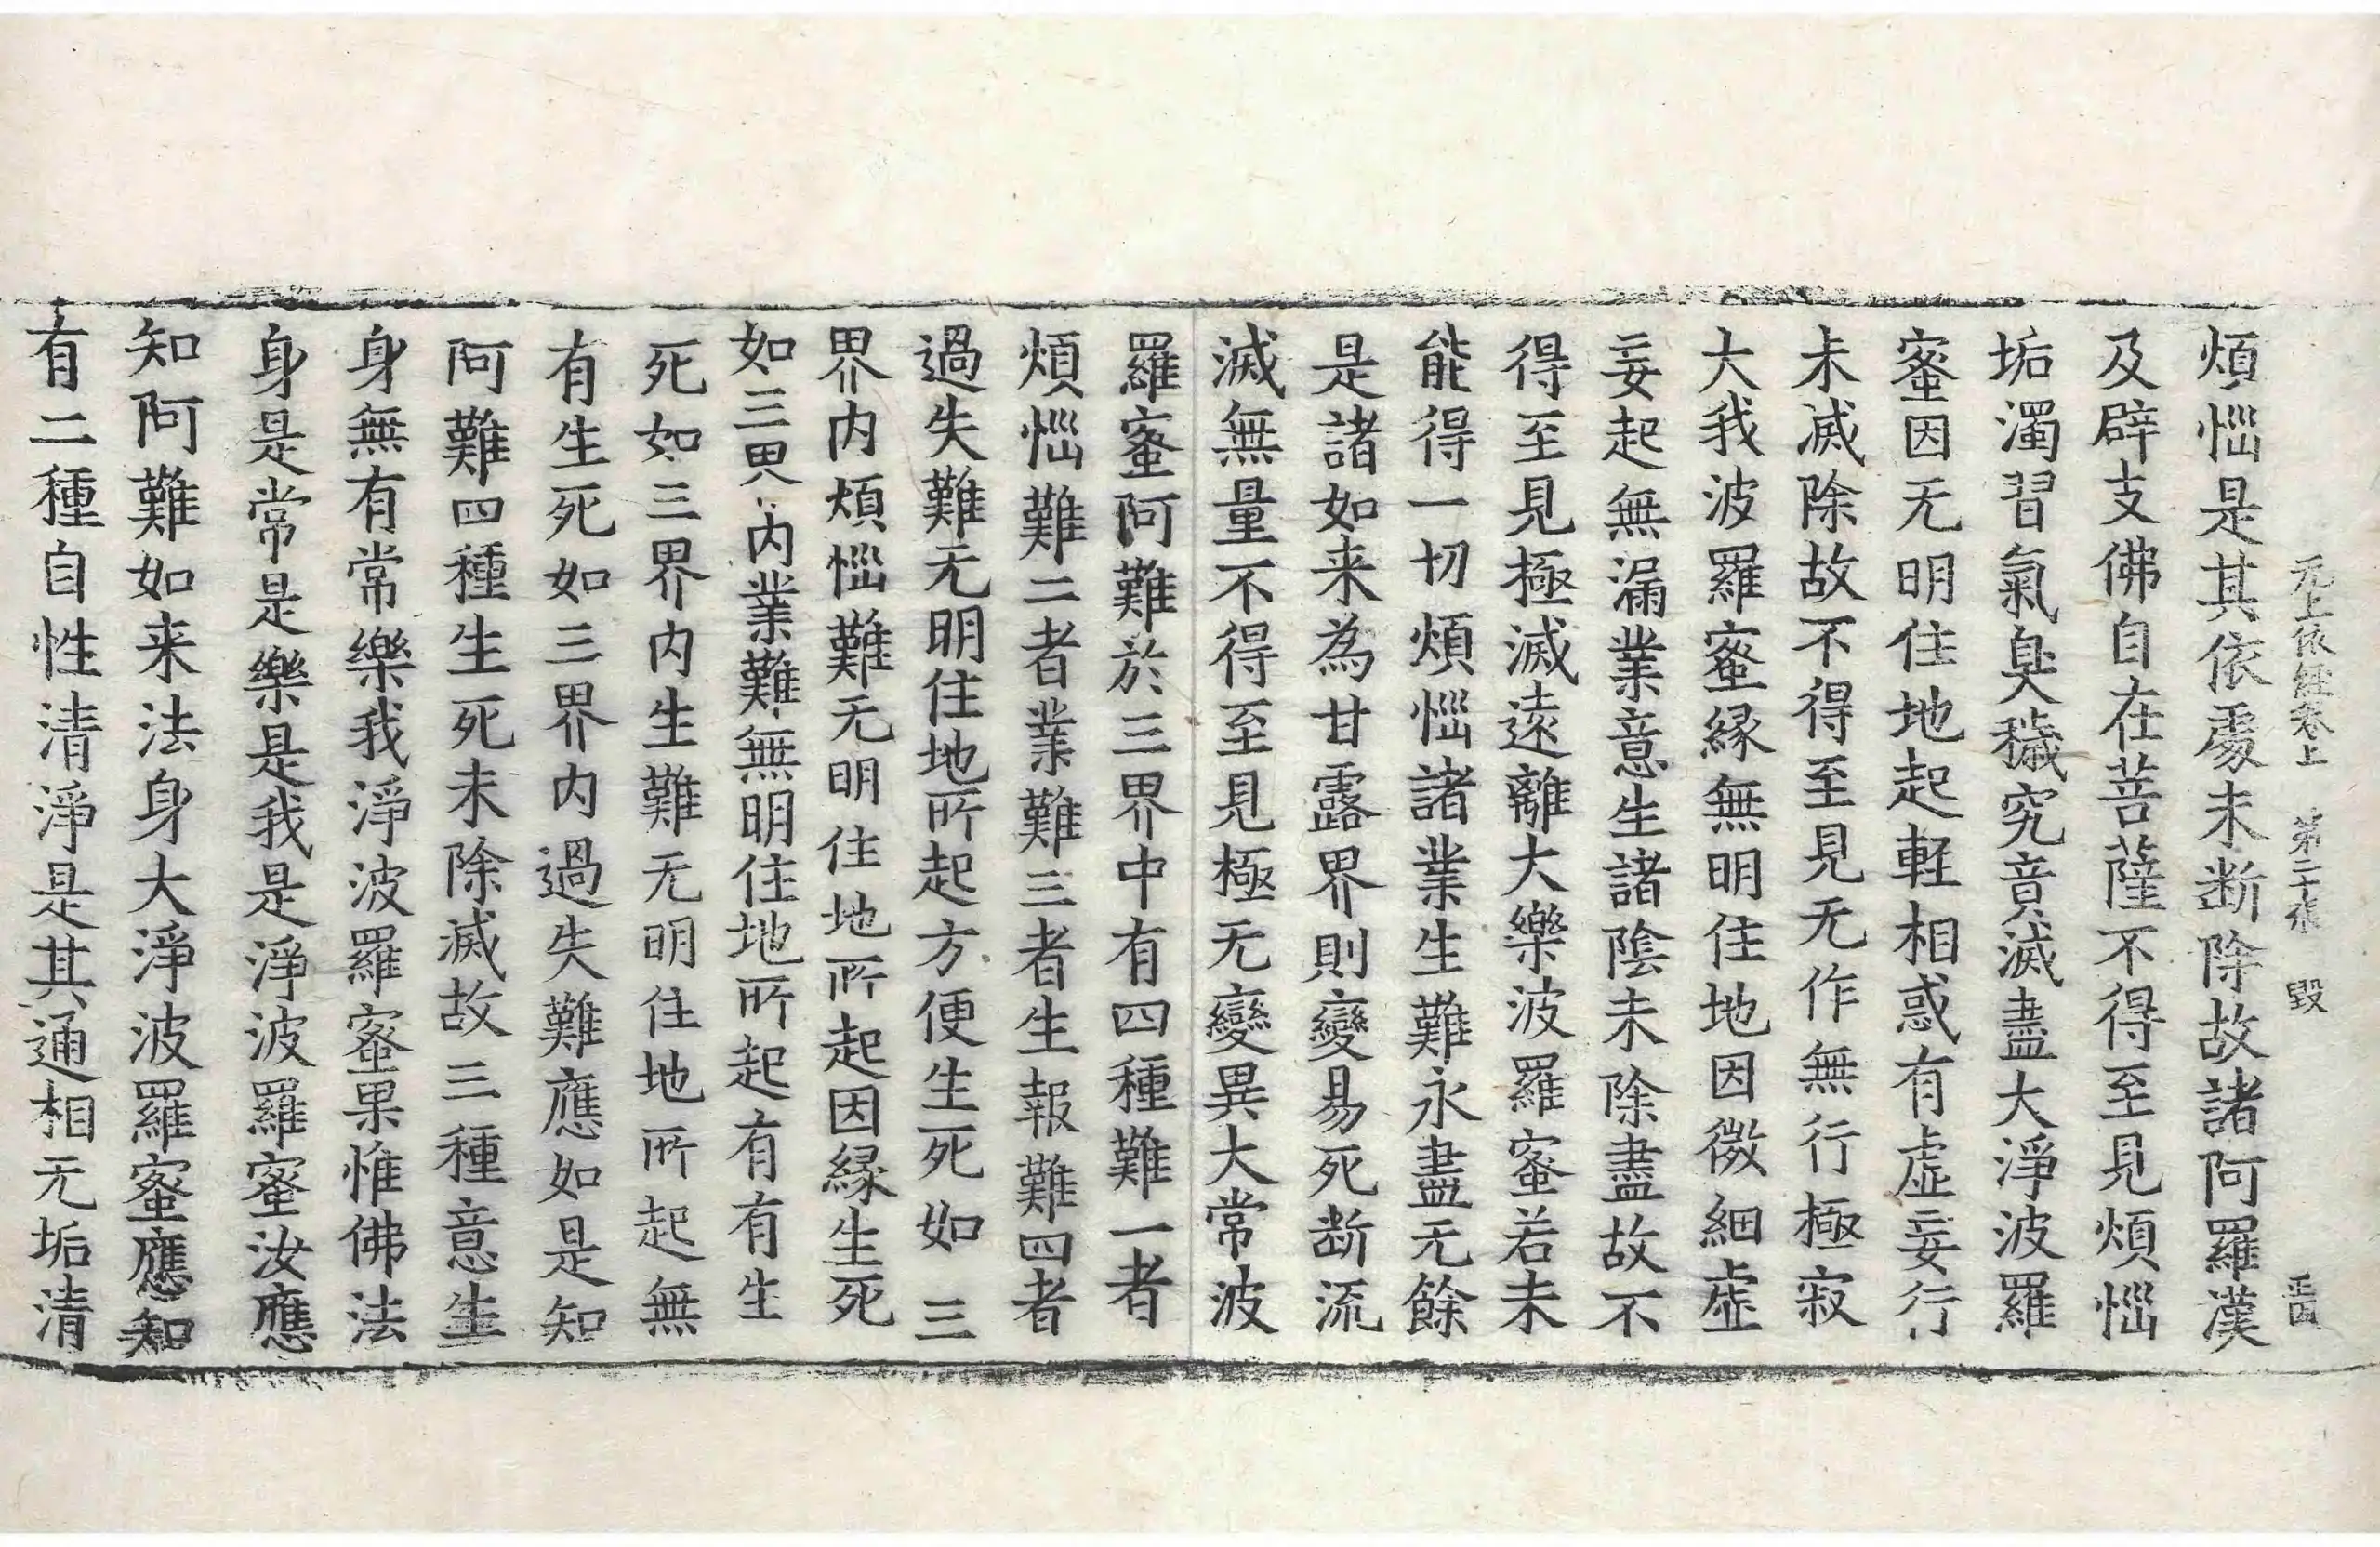 无上依經卷上 第二十張 毀
煩惱是其依處未断除故諸阿羅漢
及辟支佛自在菩薩不得至見煩惱
垢濁習氣臭穢究竟滅盡大淨波羅
蜜因无明住地起輕相惑有虛妄行
未滅除故不得至見无作無行極寂
大我波羅蜜緣無明住地因微細虛
妄起無漏業意生諸陰未除盡故不
得至見極滅遠離大樂波羅蜜若未
能得一切煩惱諸業生難永盡无餘
是諸如来為甘露界則變易死断流
滅無量不得至見極无變異大常波
羅蜜阿難於三界中有四種難一者
煩惱難二者業難三者生報難四者
過失難无明住地所起方便生死如三
界内煩惱難无明住地所起因緣生死
如三界内業難無明住地所起有有生
死如三界内生難无明住地所起無
有生死如三界内過失難應如是知
阿難四種生死未除滅故三種意生
身無有常樂我淨波羅蜜果惟佛法
身是常是樂是我是淨波羅蜜汝應
知阿難如来法身大淨波羅蜜應知
有二種自性清淨是其通相无垢清